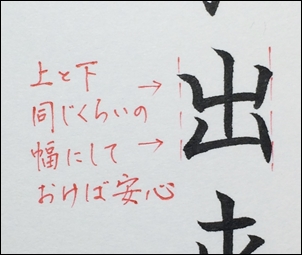 上と下
同じくらいの
幅にして
おけば安心
出